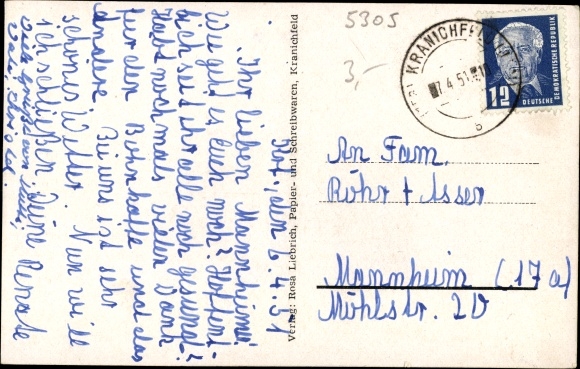 Hof, den 6.4.51
Ihr lieben Mannheimer!
Wie geht es Euch noch? Hoffent-
lich seid ihr alle noch gesund.
Habt nochmals vielen Dank
für den Bohnkaffe und das
Andere. Bei uns ist sehr
schönes Wetter. Nun will
ich schließen. Deine Renate
Viele Grüße von
5305
3,-
KRANICHFELD
7.4.51
b
12
DEUTSCHE
DEMOKRATISCHE REPUBLIK
Verlag: Rosa Liebrich, Papier- und Schreibwaren, Kranichfeld
An Fam.
Röhr + Asser
Mannheim (17a)
Mühlstr. 20